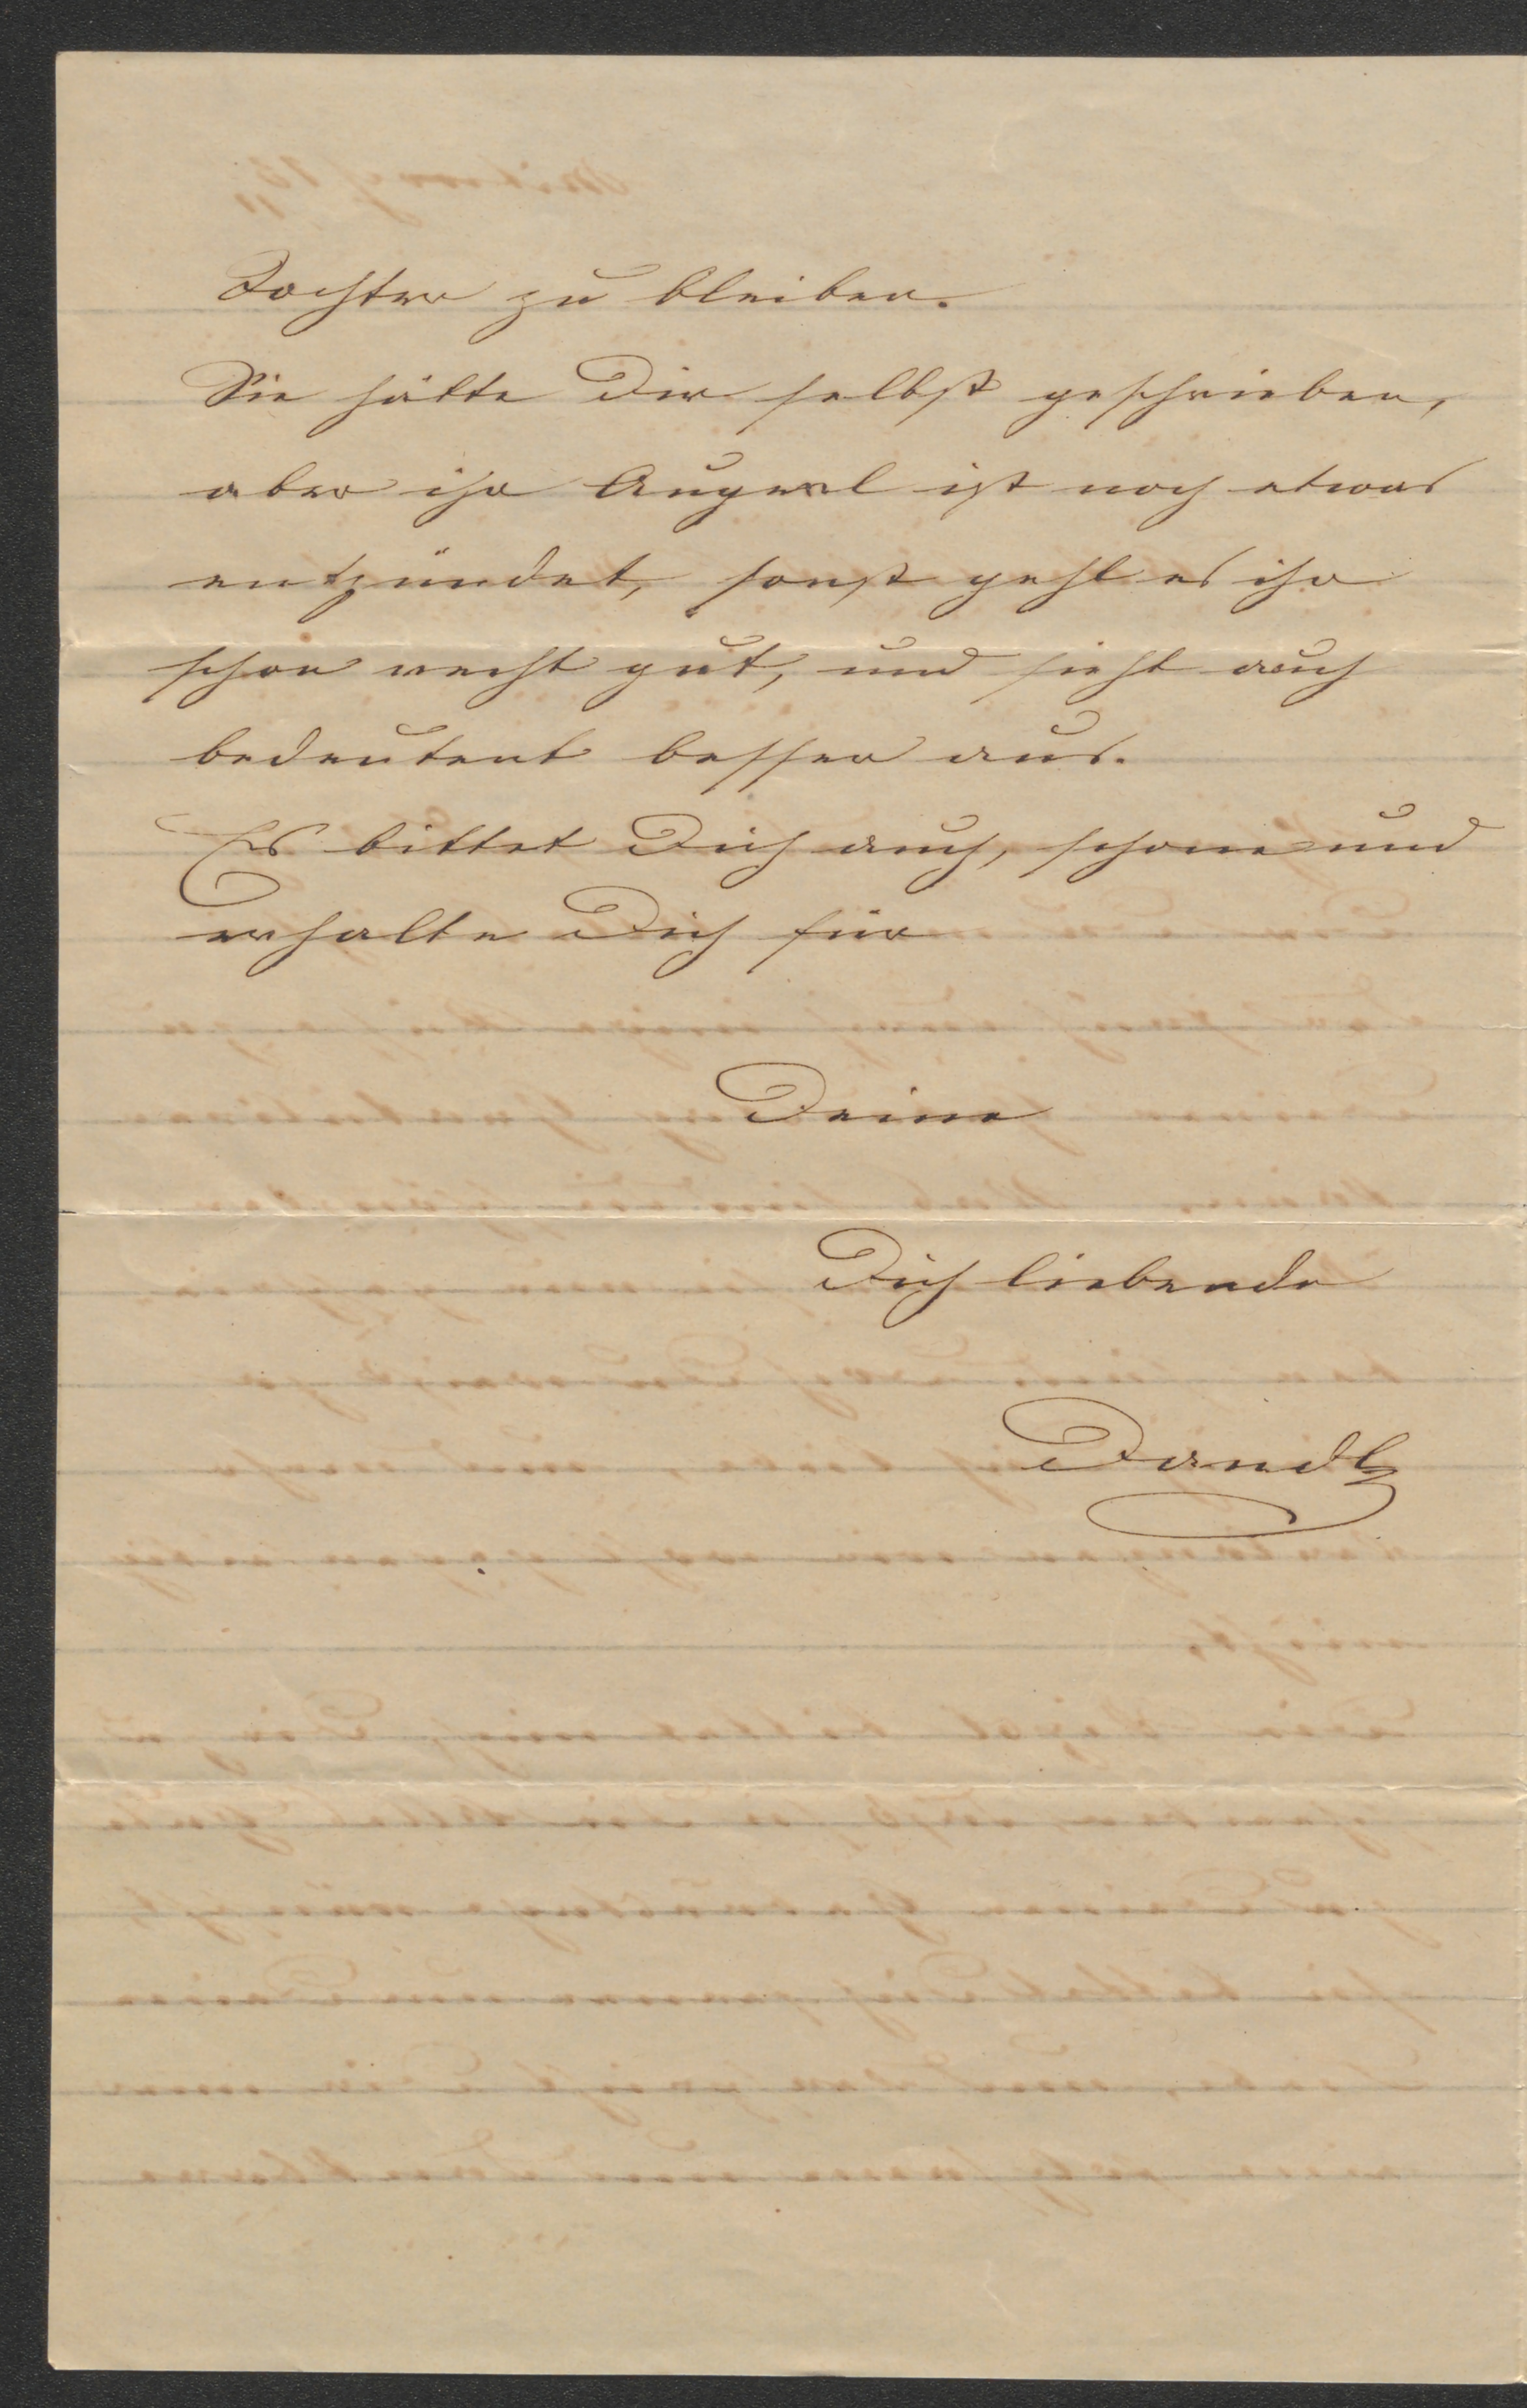 Tochter zu bleiben.
Sie hätte Dir selbst geschrieben,
aber ihr Augerl ist noch etwas
entzündet, sonst geht es ihr
schon recht gut, und sieht auch
bedeutent besser aus.
Es bittet Dich auch, schone und
erhalte Dich für
Deine
Dich liebende